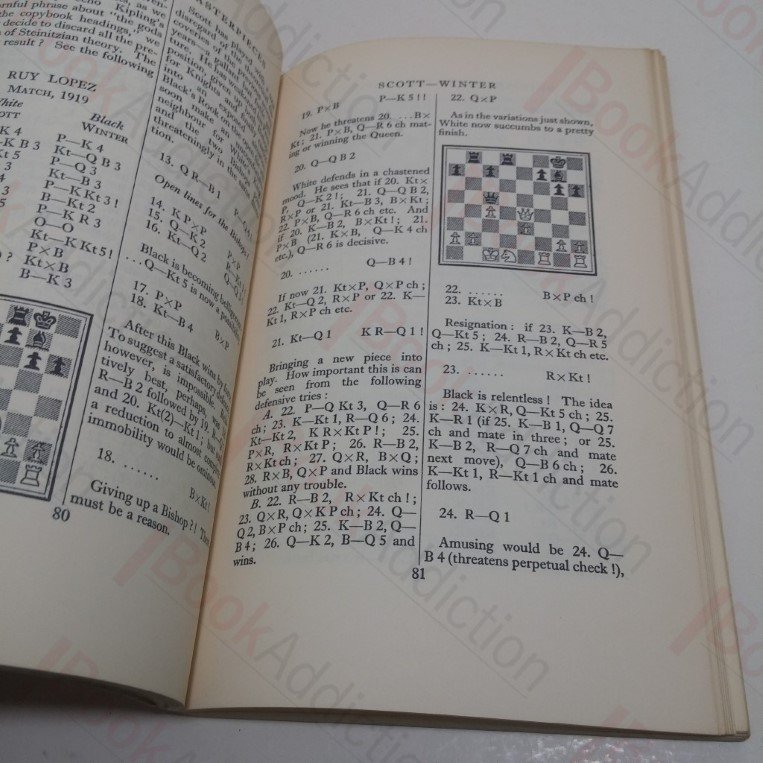 ASTERPIECES
echo Kipling's
rnful phrase about 'the gods
the copybook headings," we
decide to discard all the pre-
of Steinitzian theory. The
result? See the following
RUY LOPEZ
MATCH, 1919
White
OTT
Black
WINTER
K 4
P—K 4
K B 3
Kt—Q B 3
Kt 5
P—Q 3
4
Kt—B 3
P—K Kt 3!
B—Kt 2
P—K R 3
O—O
Kt—K Kt 5!
P×B
Kt×B
B—K 3
80
Scott just played
disregard of
coveries of
ture. He gains
positional
for Knights and
into an
Black's Rook
soon, make an
neighbour
and the two Bishops
threateningly in the
tion.
13. Q R—B 1
Open lines for the Bishops!
14. K P×P
15. Q—K 2
16. Kt—Q 2
Black is becoming
...Q—Kt 5 is now a
17. P×P
18. Kt—B 4
After this Black wins by force.
To suggest a satisfactory
however, is impossible.
tively best, perhaps, was
R—B 2 followed by 19.
and 20. Kt(2)—K 1; but
a reduction to almost complete
immobility would be
18. ......
B×Kt!
Giving up a Bishop?! There
must be a reason.
SCOTT—WINTER
19. P×B P—K 5!!
Now he threatens 20. ... B×
Kt; 21. P×B, Q—R 6 ch mat-
ing or winning the Queen.
20. Q—Q B 2
White defends in a chastened
mood. He sees that if 20. K×
P, Q—K 2!; 21. Q—Q B 2,
R×P or 21. Kt—B 3, B×Kt;
22. P×B, Q—R 6 ch etc. And
if 20. K—B 2, B×Kt!; 21.
P×B (21. K×B, Q—K 4 ch
etc.), Q—R 6 is decisive.
20. ...... Q—B 4!
If now 21. Kt×P, Q×P ch;
22. Kt—Q 2, R×P or 22. K—
Kt 1, R×P ch etc.
21. Kt—Q 1 K R—Q 1!
Bringing a new piece into
play. How important this is can
be seen from the following
defensive tries:
A. 22. P—Q Kt 3, Q—R 6
ch; 23. K—Kt 1, R—Q 6; 24.
Kt—Kt 2, K R×Kt P!; 25.
P×R, R×Kt P; 26. R—B 2,
R×Kt ch; 27. Q×R, B×Q;
28. R×B, Q×P and Black wins
without any trouble.
B. 22. R—B 2, R×Kt ch!;
23. Q×R, Q×K P ch; 24. Q—
Q 2, B×P ch; 25. K—B 2, Q—
B 4; 26. Q—K 2, B—Q 5 and
wins.
22. Q×P
As in the variations just shown,
White now succumbs to a pretty
finish.
22. ...... B×P ch!
23. Kt×B
Resignation: if 23. K—B 2,
Q—Kt 5; 24. R—B 2, Q—R 5
ch; 25. K—Kt 1, R×Kt ch etc.
23. ...... R×Kt!
Black is relentless! The idea
is: 24. K×R, Q—Kt 5 ch; 25.
K—R 1 (if 25. K—B 1, Q—Q 7
ch and mate in three; or 25.
K—B 2, R—Q 7 ch and mate
next move), Q—B 6 ch; 26.
K—Kt 1, R—Kt 1 ch and mate
follows.
24. R—Q 1
Amusing would be 24. Q—
B 4 (threatens perpetual check!),
81
BookAddiction